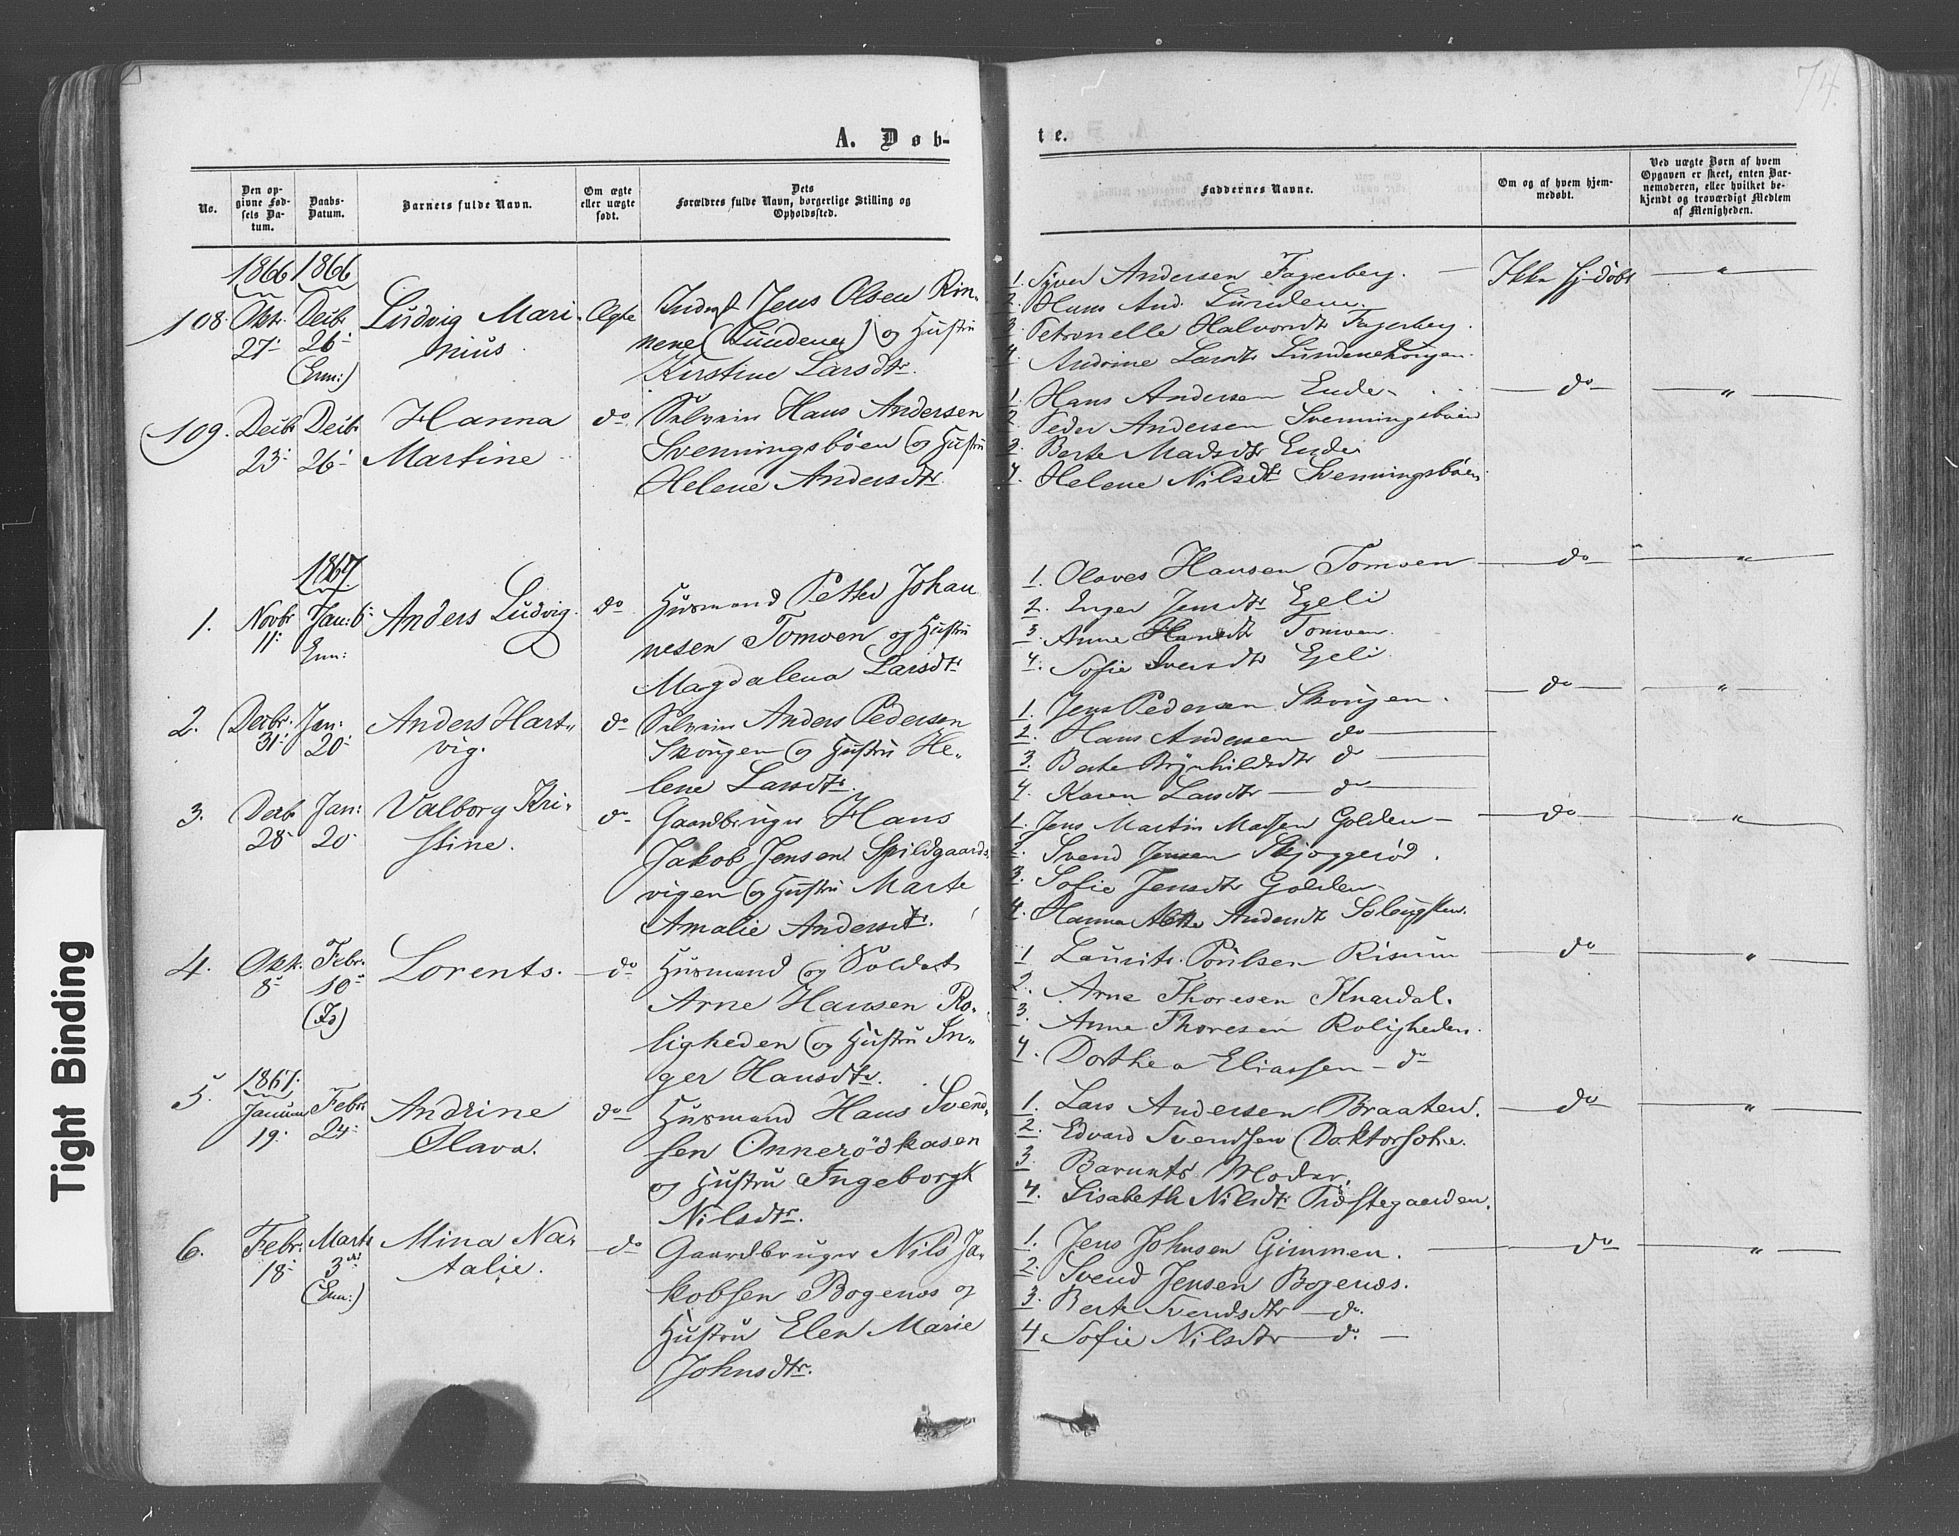 74.
A. Døb-
te.
No.
Den op-
givne Fød-
sels Da-
tum.
Daabs-
Datum.
Barnets fulde Navn.
Om ægte
eller uægte
født.
Dets
Forældres fulde Navn, borgerlige Stilling og
Opholdssted.
Faddernes Navne.
Om og af hvem hjem-
medøbt.
Ved uægte Børn af hvem
Opgaven er skeet, enten Bar-
nemoderen, eller hvilket be-
kjendt og troværdigt Medlem
af Menigheden.
1866 1866
108. Okt. 27. Decbr 26. (Enn:)
Ludvig Mari-
nius.
Ægte
Jens Olsen Rin-
nene (Lundene) og Hustru
Kirstine Larsdtr.
1. Syver Andersen Fagerberg.
2. Hans And. Lundene.
3. Petronelle Halvorsdtr Fagerberg.
4. Andrine Larsdtr
Ikke hj-døbt "
109. Decbr 23. Decbr 26.
Hanna
Martine
do
Selveier Hans Andersen
Svenningsbøen og Hustru
Helene Andersdtr.
1. Hans Andersen Ende
2. Peder Andersen Svenningsbøen
3. Berte Madsdtr Ende
4. Helene Nilsdtr Svenningsbøen
do "
1867.
1. Novbr 11. Jan: 6. Enn:
Anders Ludvig.
do
Husmand Petter Johan-
nesen Tomven og Hustru
Magdalena Larsdtr
1. Olaves Hansen Tomven
2. Inger Jensdtr Egeli
3. Anne Hansdtr Tomven.
4. Sofie Iversdtr Egeli
do "
2. Decbr. 31. Jan: 20.
Anders Hart-
vig.
do
Selveier Anders Pedersen
Skougen og Hustru He-
lene Larsdtr.
1. Jens Pedersen Skougen.
2. Hans Andersen do
3. Berte Brynhildsdtr do
4. Karen Larsdtr do
do "
3. Decb 28. Jan: 20
Valborg Kri-
stine.
do
Gaardbruger Hans
Jakob Jensen Spildgaards-
vigen og Hustru Marte
Amalie Andersdtr.
1. Jens Martin Madsen Golden
2. Svend Jensen Skjoggerød.
3. Sofie Jensdtr Golden
4. Hanna Andersdtr
do "
4. Okt. 8. Febr. 10. (Id)
Lorents.
do
Husmand og Soldat
Arne Hansen Ro-
ligheden og Hustru In-
ger Hansdtr.
1 Laurits Poulsen Risum
2. Arne Thoresen Knardal.
3. Anne Thoresen Roligheden.
4. Dorthea Eliassen do
do "
1867.
5. Januar 19. Febr 24.
Andrine
Olava.
do
Husmand Hans Svend-
sen Onnerödkasen
og Hustru Ingeborg
Nilsdtr.
1. Lars Andersen Braaten.
2. Edvard Svendsen
3. Barnets Moder.
4. Lisabeth Nilsdtr Præstegaarden.
do "
6. Febr. 18. Marts 3. (Enn:)
Mina Na-
talie.
do
Gaardbruger Nils Ja-
kobsen Bogenæs og
Hustru Elen Marie
Johnsdtr.
1. Jens Johnsen Gimmen.
2. Svend Jensen Bogenæs.
3. Berte Svendsdtr do.
4 Sofie Nilsdtr do.
do "
Tight Binding